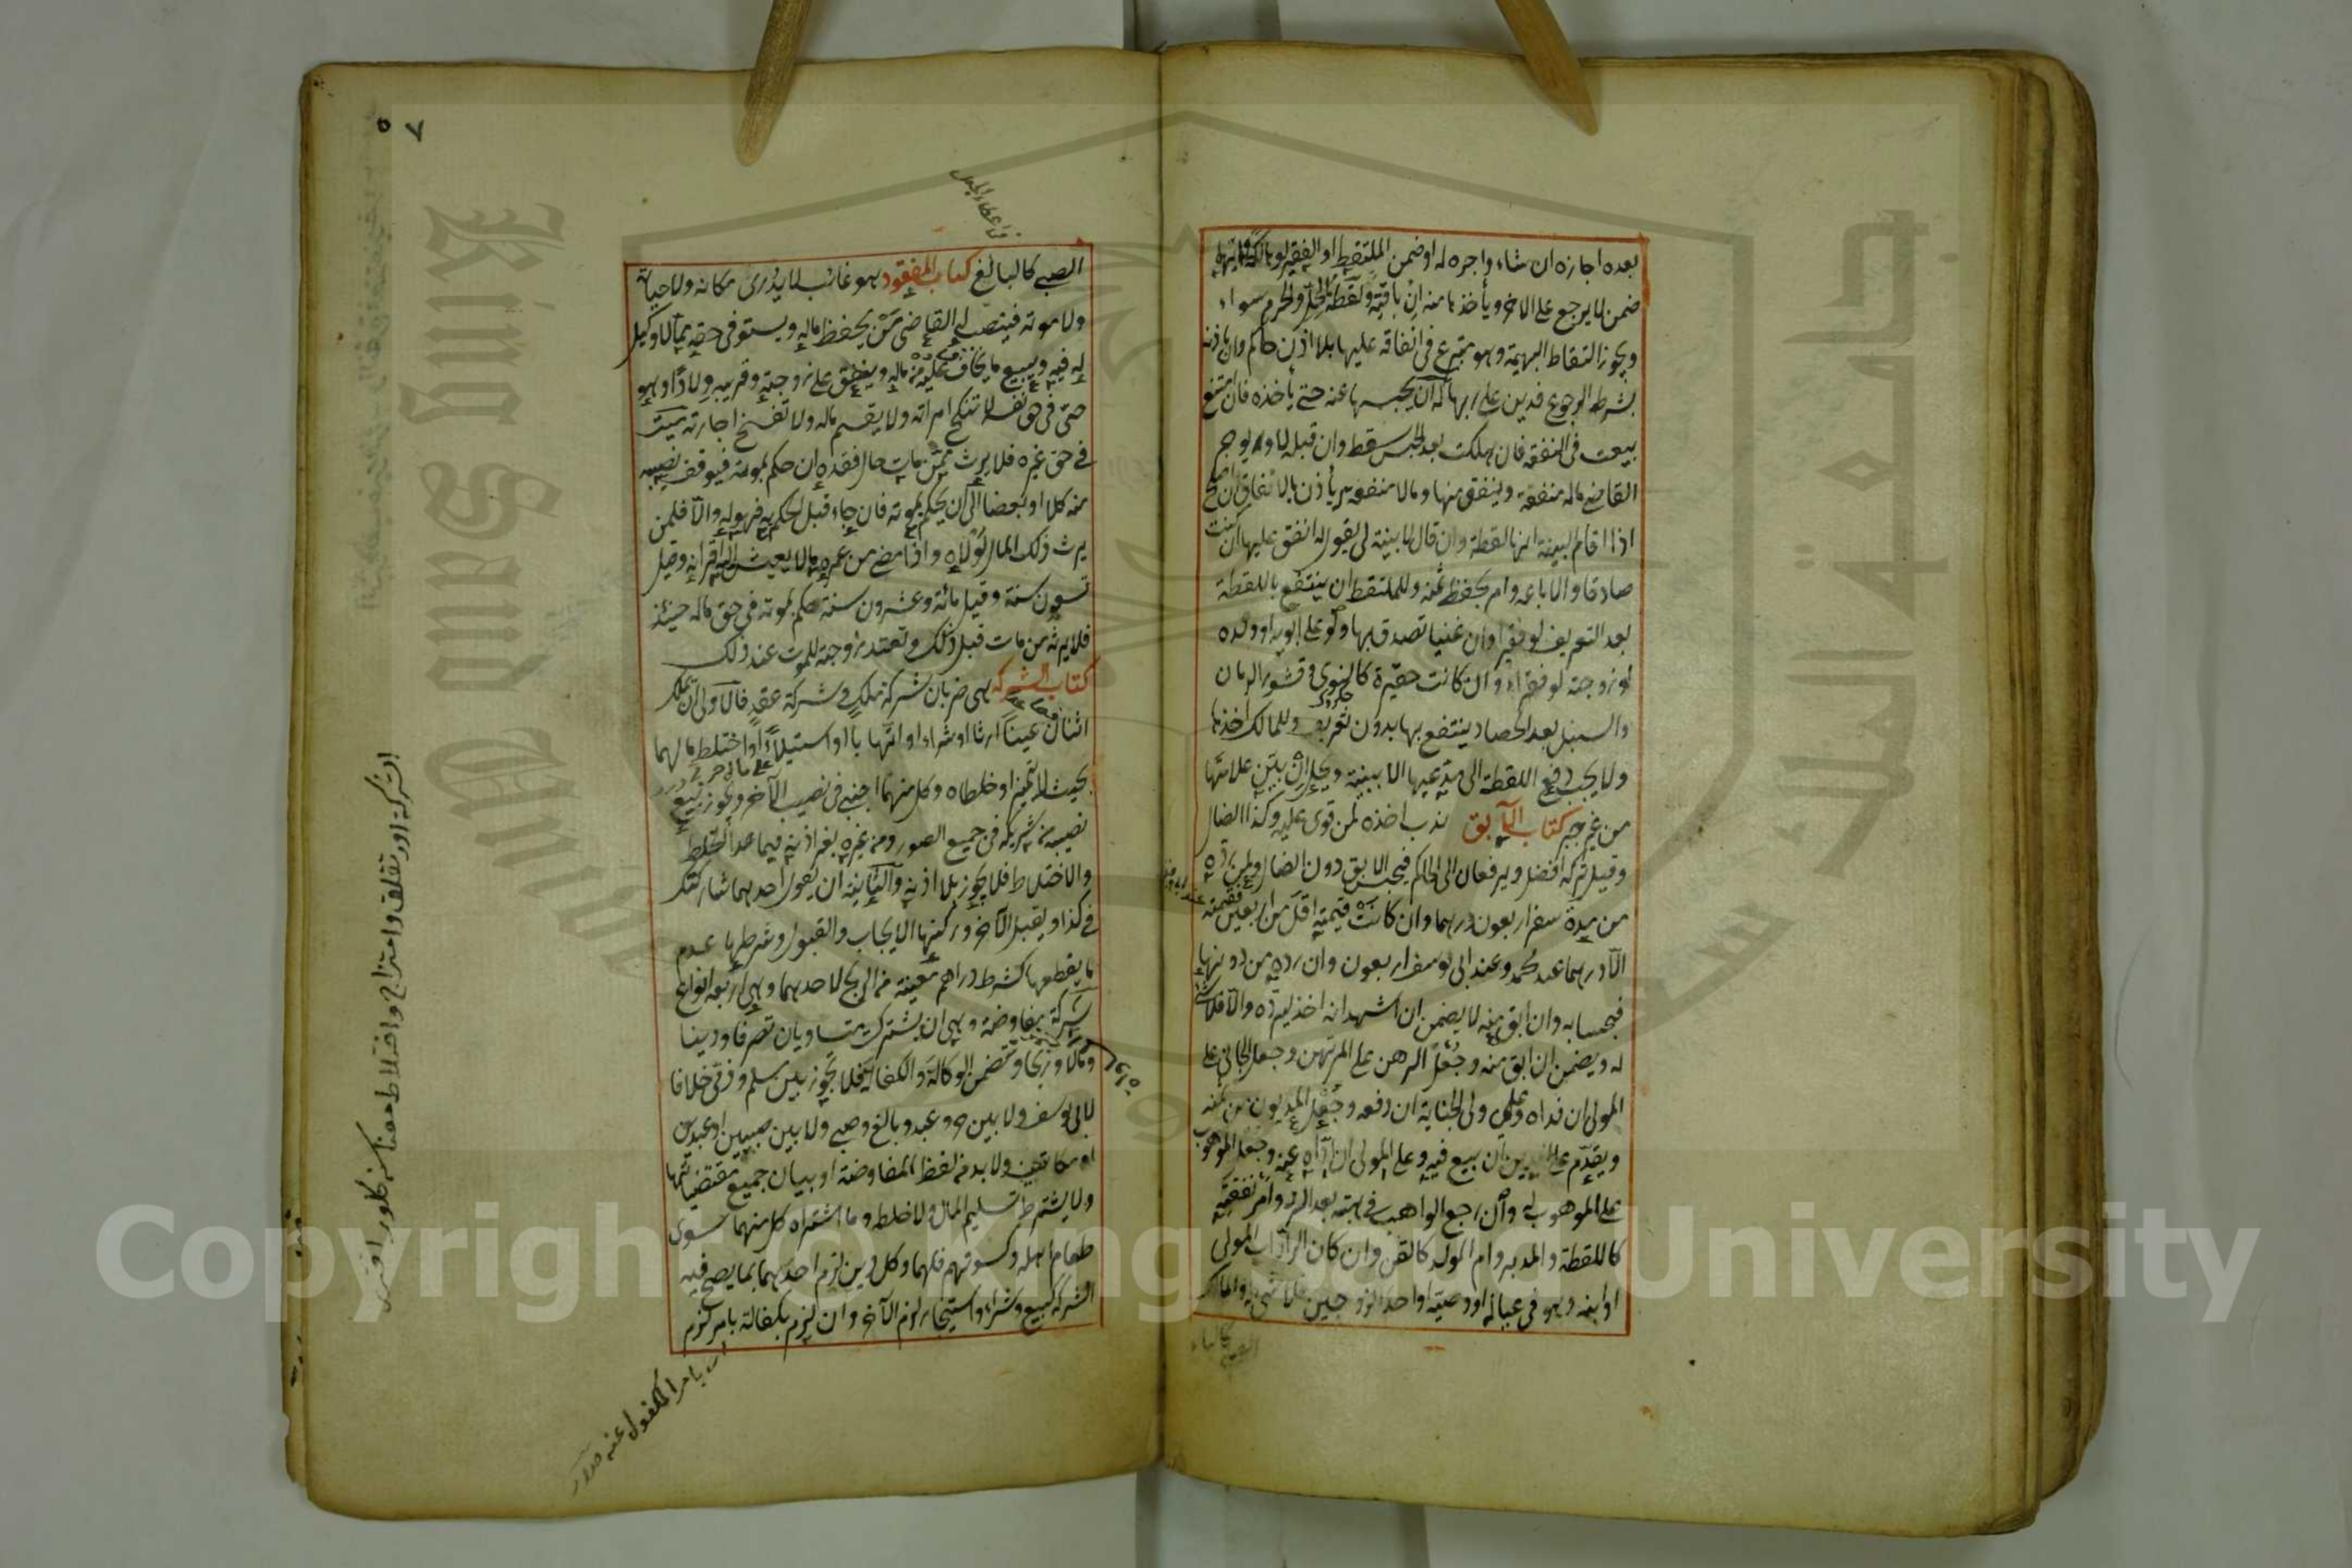 بعده اجازه ان شاء واجره له او ضمن الملتقط او الفقير لو هالكة وايهما
ضمن لا يرجع على الآخر ويأخذها منه ان باقية ولقطة الحل والحرم سواء
ويجوز التقاط البهيمة وهو متبرع في انفاقه عليها بلا اذن حاكم وان باذنه
بشرط الرجوع فدين على ربها له ان يحبسها عنه حتى يأخذه فان امتنع
بيعت في النفقة فان هلكت بعد الحبس سقط وان قبله لا ويوجر
القاضي ماله منفعة وينفق منها وما لا منفعة له يأذن بالانفاق ان اصلح
اذا اقام البينة انها لقطة وان قال لا بينة لي يقول له انفق عليها ان كنت
صادقا والا باعه وامر بحفظ ثمنه وللملتقط ان ينتفع باللقطة
بعد التعريف لو فقيرا وان غنيا تصدق بها ولو على ابويه او ولده
او زوجته لو فقراء وان كانت حقيرة كالنوى وقشور الرمان
والسنبل بعد الحصاد ينتفع بها بدون تعريف وللمالك اخذها
ولا يجب دفع اللقطة الى مدعيها الا ببينة ويحل ان بين علامتها
من غير جبر كتاب الآبق ندب اخذه لمن قوي عليه وكذا الضال
وقيل تركه افضل ويرفعان الى الحاكم فيحبس الابق دون الضال ولمن رده
من مدة سفر اربعون درهما وان كانت قيمته اقل من اربعين فقيمته
الا درهما عند محمد وعند ابي يوسف اربعون وان رده من دونها
فبحسابه وان ابق منه لا يضمن ان اشهد انه اخذ ليرده والا فلا شئ
له ويضمن ان ابق منه وجعل الرهن على المرتهن وجعل الجاني على
المولى ان فداه وعلى ولي الجناية ان دفعه وجعل المديون من ثمنه
ويقدم على الدين ان بيع فيه وعلى المولى ان اداه عنه وجعل الموهوب
على الموهوب له وان رجع الواهب في هبته بعد الرد وامر نفقته
كاللقطة والمدبر وام الولد كالقن وان كان الراد اب المولى
او ابنه وهو في عياله او وصيه او احد الزوجين فلا شئ له
الصبي كالبالغ كتاب المفقود هو غائب لا يدرى مكانه ولا حياته
ولا موته فينصب له القاضي من يحفظ ماله ويستوفي حقه مما لا وكيل
له فيه ويبيع ما يخاف عليه من ماله وينفق على زوجته وقريبه ولادا وهو
حي في حق نفسه لا تنكح امرأته ولا يقسم ماله ولا تفسخ اجارته ميت
في حق غيره فلا يرث ممن مات حال فقده ان حكم بموته فيوقف نصيبه
منه كلا او بعضا الى ان يحكم بموته فان جاء قبل الحكم به فهو له والا فلمن
يرث ذلك المال لولاه واذا مضى من عمره ما لا يعيش اليه اقرانه وقيل
تسعون سنة وقيل مائة وعشرون سنة حكم بموته في حق ماله حينئذ
فلا يرثه من مات قبل ذلك وتعتد زوجته للموت عند ذلك
كتاب الشركة هي ضربان شركة ملك وشركة عقد فالاولى ان يملك
اثنان عينا ارثا او شراء او اتهابا او استيلاء او اختلط مالهما
بحيث لا يتميز او خلطاه وكل منهما اجنبي في نصيب الآخر ويجوز بيع
نصيبه من شريكه في جميع الصور ومن غيره بغير اذنه فيما عدا الخلط
والاختلاط فلا يجوز بلا اذنه والثانية ان يقول احدهما شاركتك
في كذا ويقبل الآخر وركنها الايجاب والقبول وشرطها عدم
ما يقطعها كشرط دراهم معينة من الربح لاحدهما وهي اربعة انواع
شركة مفاوضة وهي ان يشترك متساويان تصرفا ودينا
ومالا وربحا وتتضمن الوكالة والكفالة فلا يجوز بين مسلم وذمي خلافا
لابي يوسف ولا بين حر وعبد وبالغ وصبي ولا بين صبيين او عبدين
او مكاتبين ولا بد من لفظ المفاوضة او بيان جميع مقتضياتها
ولا يشترط تسليم المال ولا خلطه وما اشتراه كل منهما سوى
طعام اهله وكسوتهم فلهما وكل دين لزم احدهما بما يصح فيه
الشركة كبيع وشراء واستيجار لزم الآخر وان لزم بكفالة بامر لزم
اى بامر المكفول عنه
Copyright © King Saud University